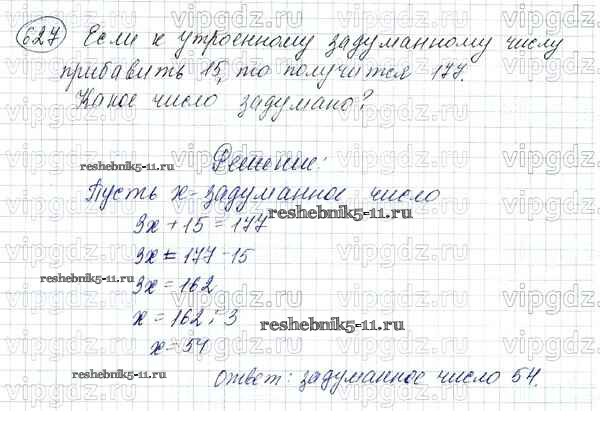 627 Если к утроенному задуманному числу
прибавить 15, то получится 177.
Какое число задумано?
Решение:
reshebnik5-11.ru
Пусть x - задуманное число
reshebnik5-11.ru
3x + 15 = 177
3x = 177 - 15
reshebnik5-11.ru
3x = 162
x = 162 : 3
reshebnik5-11.ru
x = 54
reshebnik5-11.ru
Ответ: задуманное число 54.
vipgdz.ru